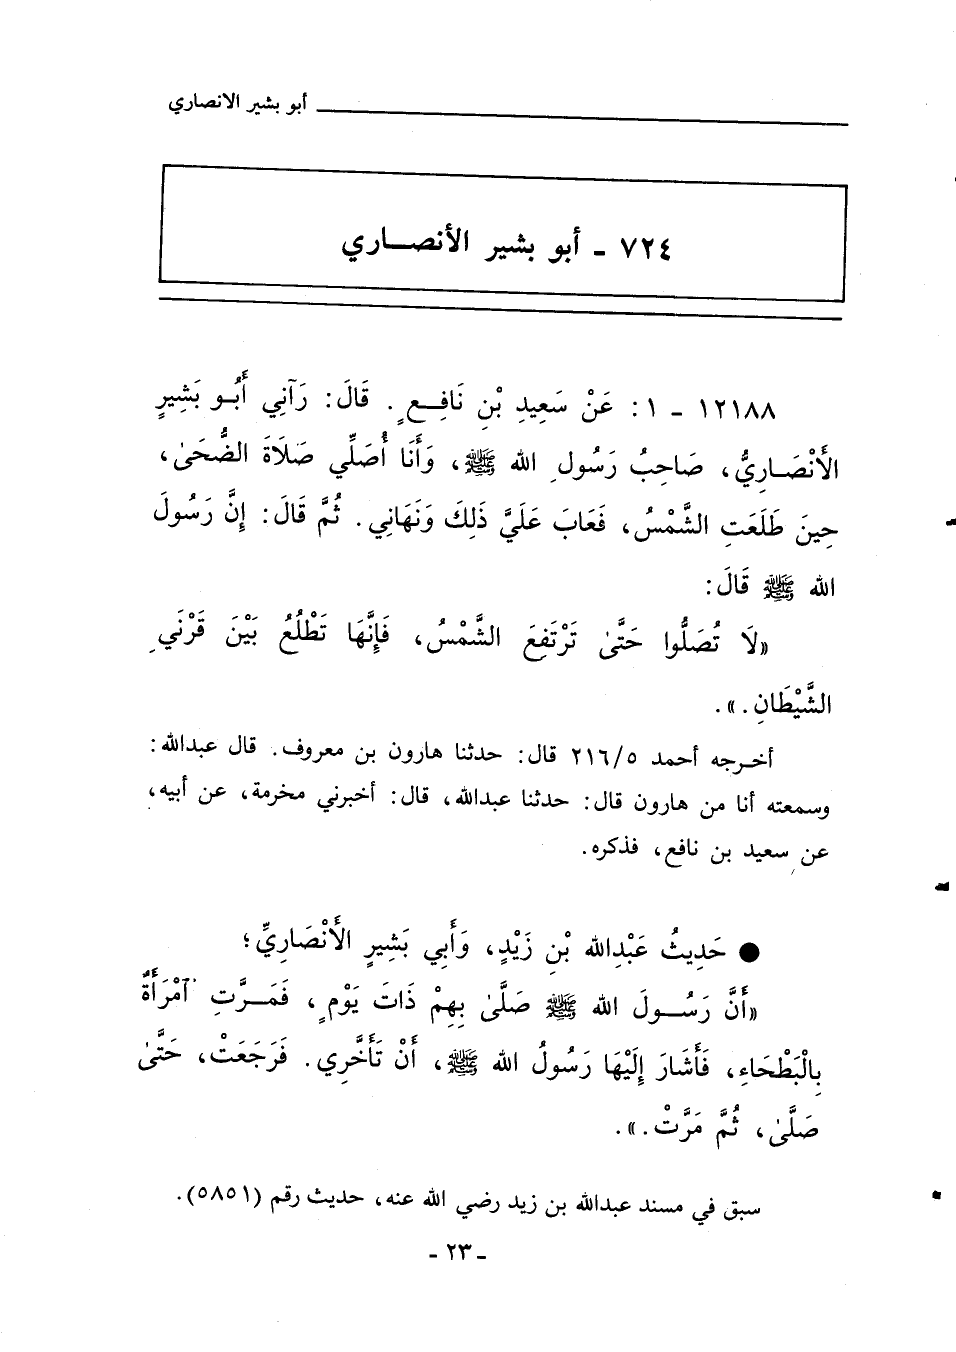 أبو بشير الانصاري
٧٢٤ - أبو بشير الأنصــاري
١٢١٨٨ - ١: عَنْ سَعِيدِ بْنِ نَافِـعٍ. قَالَ: رَآنِي أَبُـو بَشِيرٍ
الأَنْصَارِيُّ، صَاحِبُ رَسُولِ الله ﷺ، وَأَنَا أُصَلِّي صَلَاةَ الضُّحَىٰ،
حِينَ طَلَعَتِ الشَّمْسُ، فَعَابَ عَلَيَّ ذَلِكَ وَنَهَانِي. ثُمَّ قَالَ: إِنَّ رَسُولَ
الله ﷺ قَالَ:
«لَا تُصَلُّوا حَتَّىٰ تَرْتَفِعَ الشَّمْسُ، فَإِنَّهَا تَطْلُعُ بَيْنَ قَرْنَيِ
الشَّيْطَانِ.».
أخـرجه أحمد ٢١٦/٥ قال: حدثنا هارون بن معروف. قال عبدالله:
وسمعته أنا من هارون قال: حدثنا عبدالله، قال: أخبرني مخرمة، عن أبيه،
عن سعيد بن نافع، فذكره.
● حَدِيثُ عَبْدِالله بْنِ زَيْدٍ، وَأَبِي بَشِيرٍ الأَنْصَارِيِّ؛
«أَنَّ رَسُــولَ الله ﷺ صَلَّىٰ بِهِمْ ذَاتَ يَوْمٍ، فَمَــرَّتِ ٱمْرَأَةٌ
بِالْبَطْحَاءِ، فَأَشَارَ إِلَيْهَا رَسُولُ الله ﷺ، أَنْ تَأَخَّرِي. فَرَجَعَتْ، حَتَّىٰ
صَلَّىٰ، ثُمَّ مَرَّتْ.».
سبق في مسند عبدالله بن زيد رضي الله عنه، حديث رقم (٥٨٥١).
- ٢٣ -